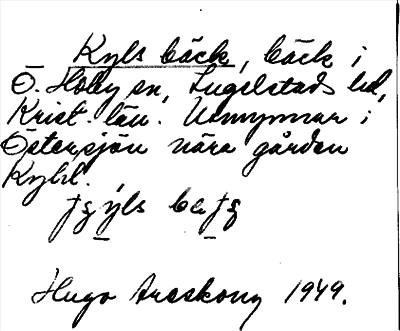 Kyls bäck, bäck i
Ö. Hoby sn, Ingelstads hd,
Krist. län. Utmynnar i
Östersjön nära gården
Kyhl.
Hugo Areskoug 1949.